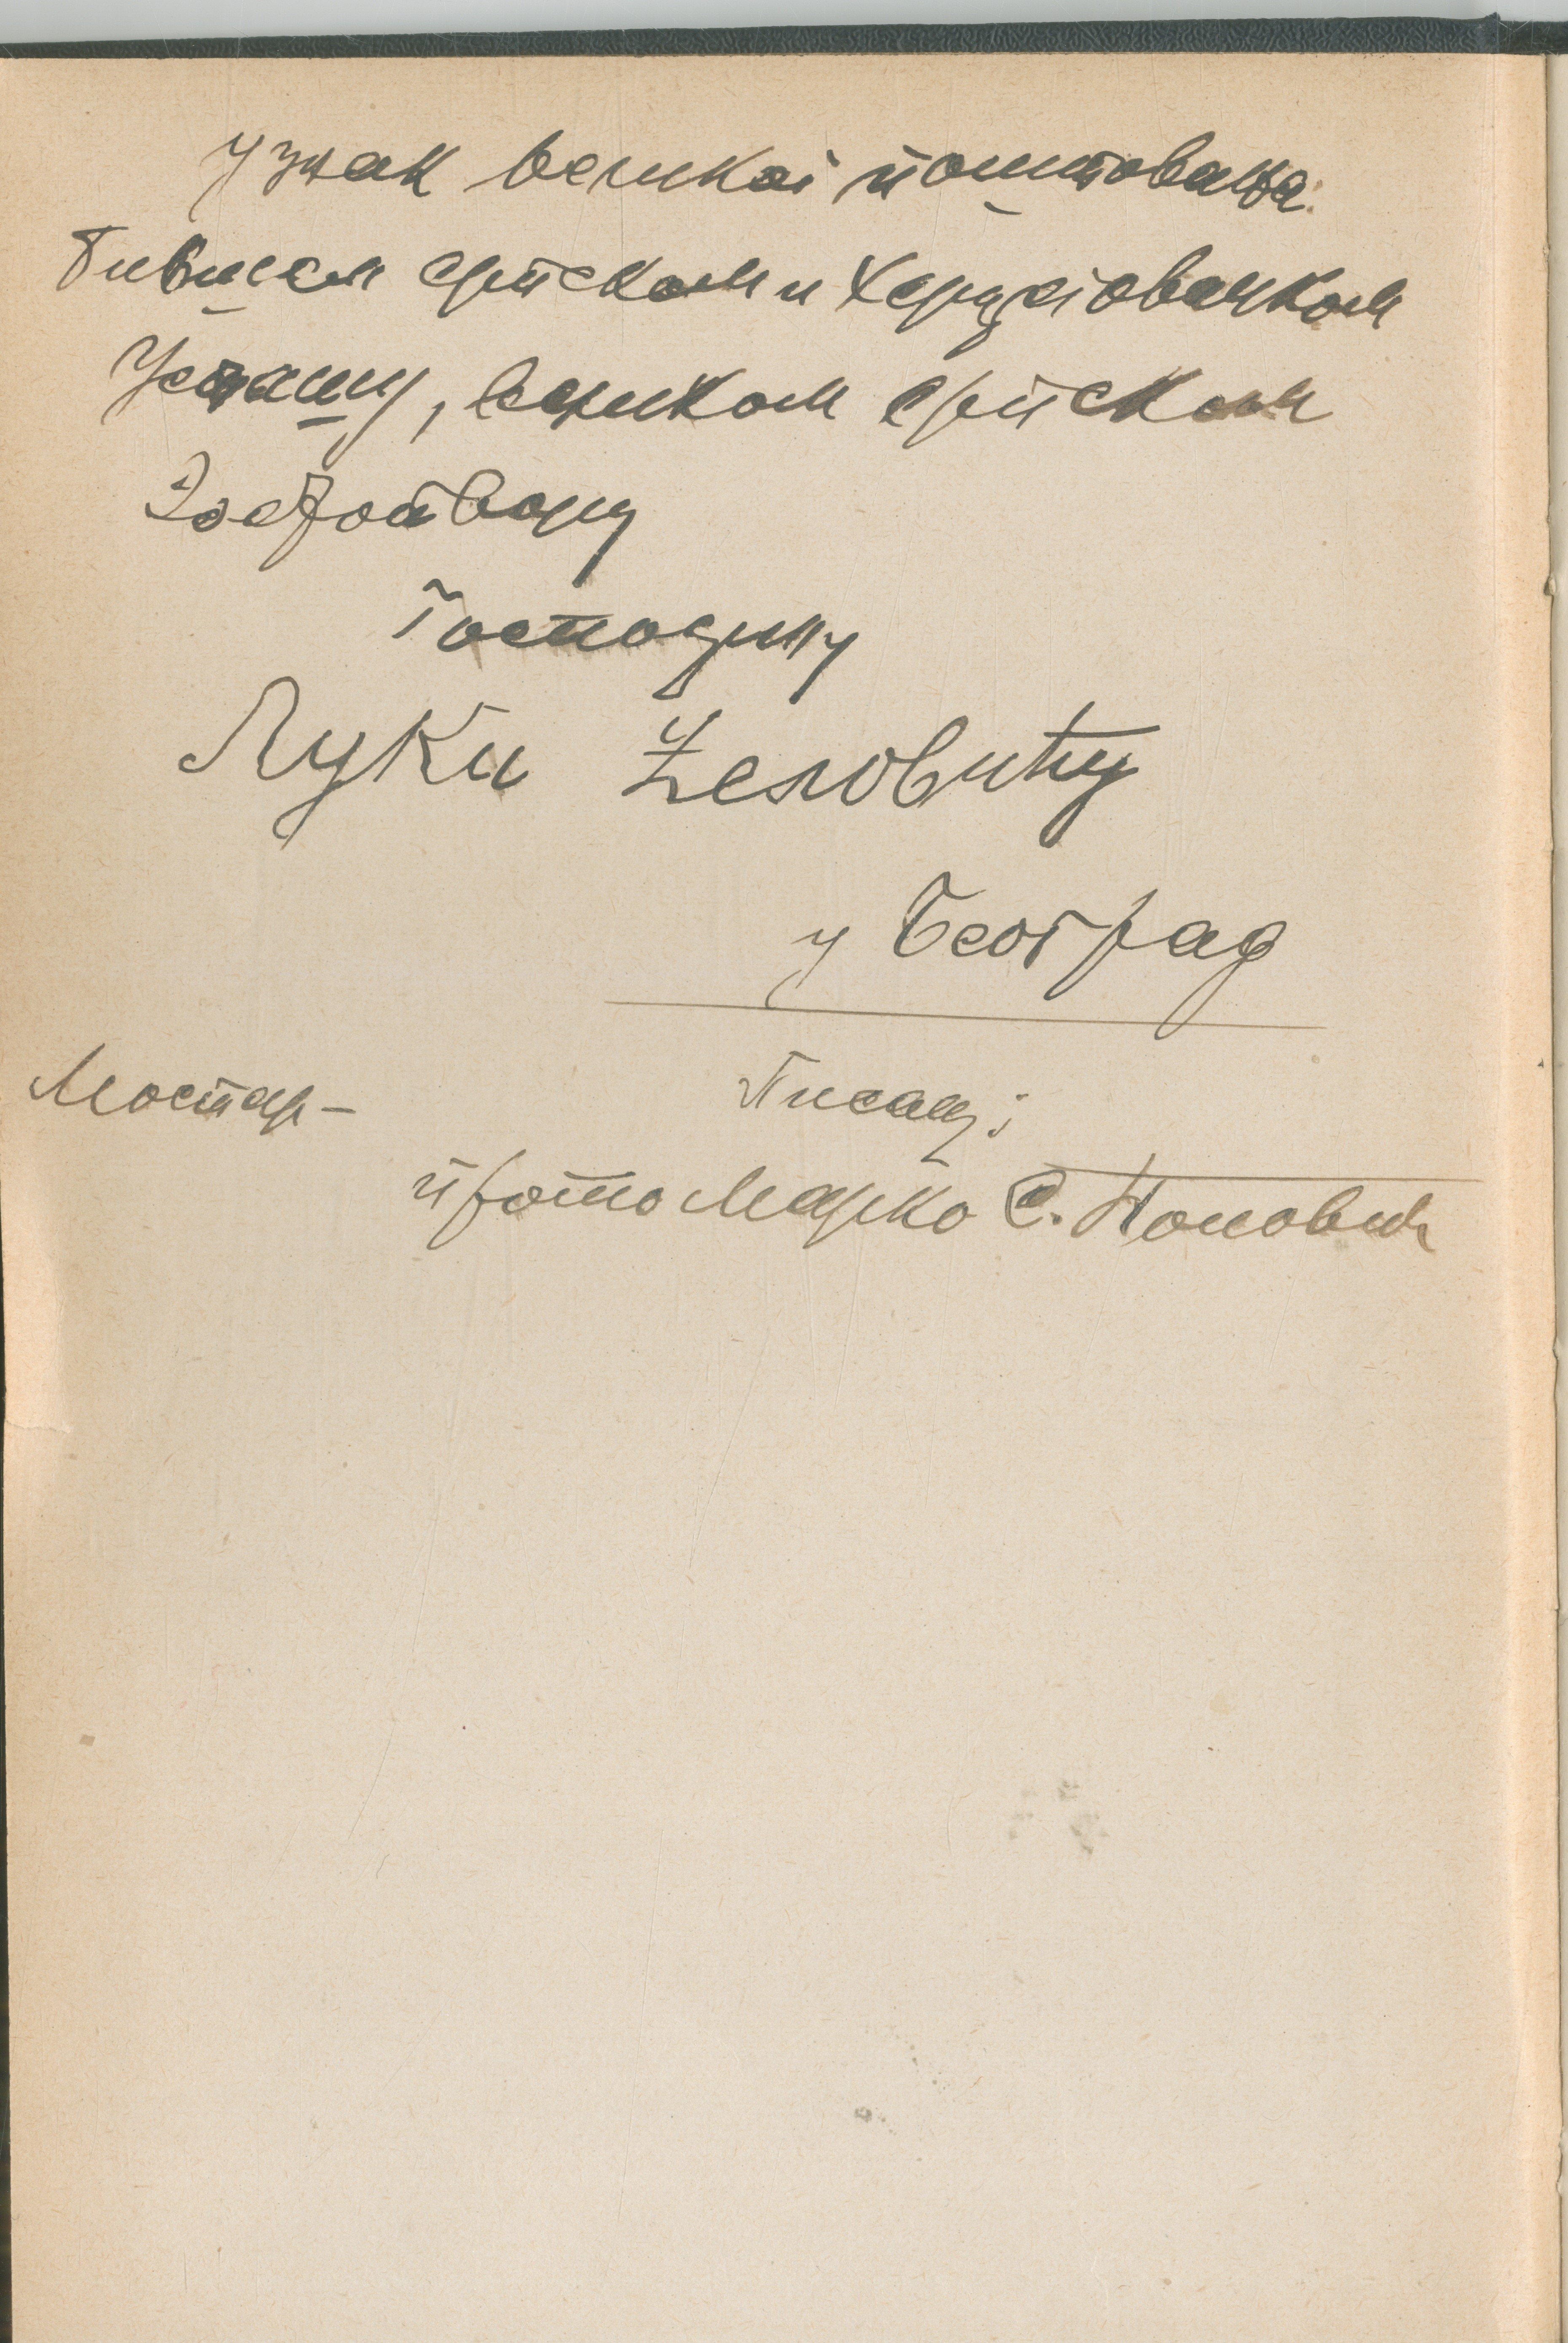 У знак великог поштовања
Бившем српском и Херцеговачком
Усташу, великом српском
Добротвору
Господину
Луки Ћеловићу
у Београд
Мостар –
Писац:
прото Марко С. Поповић